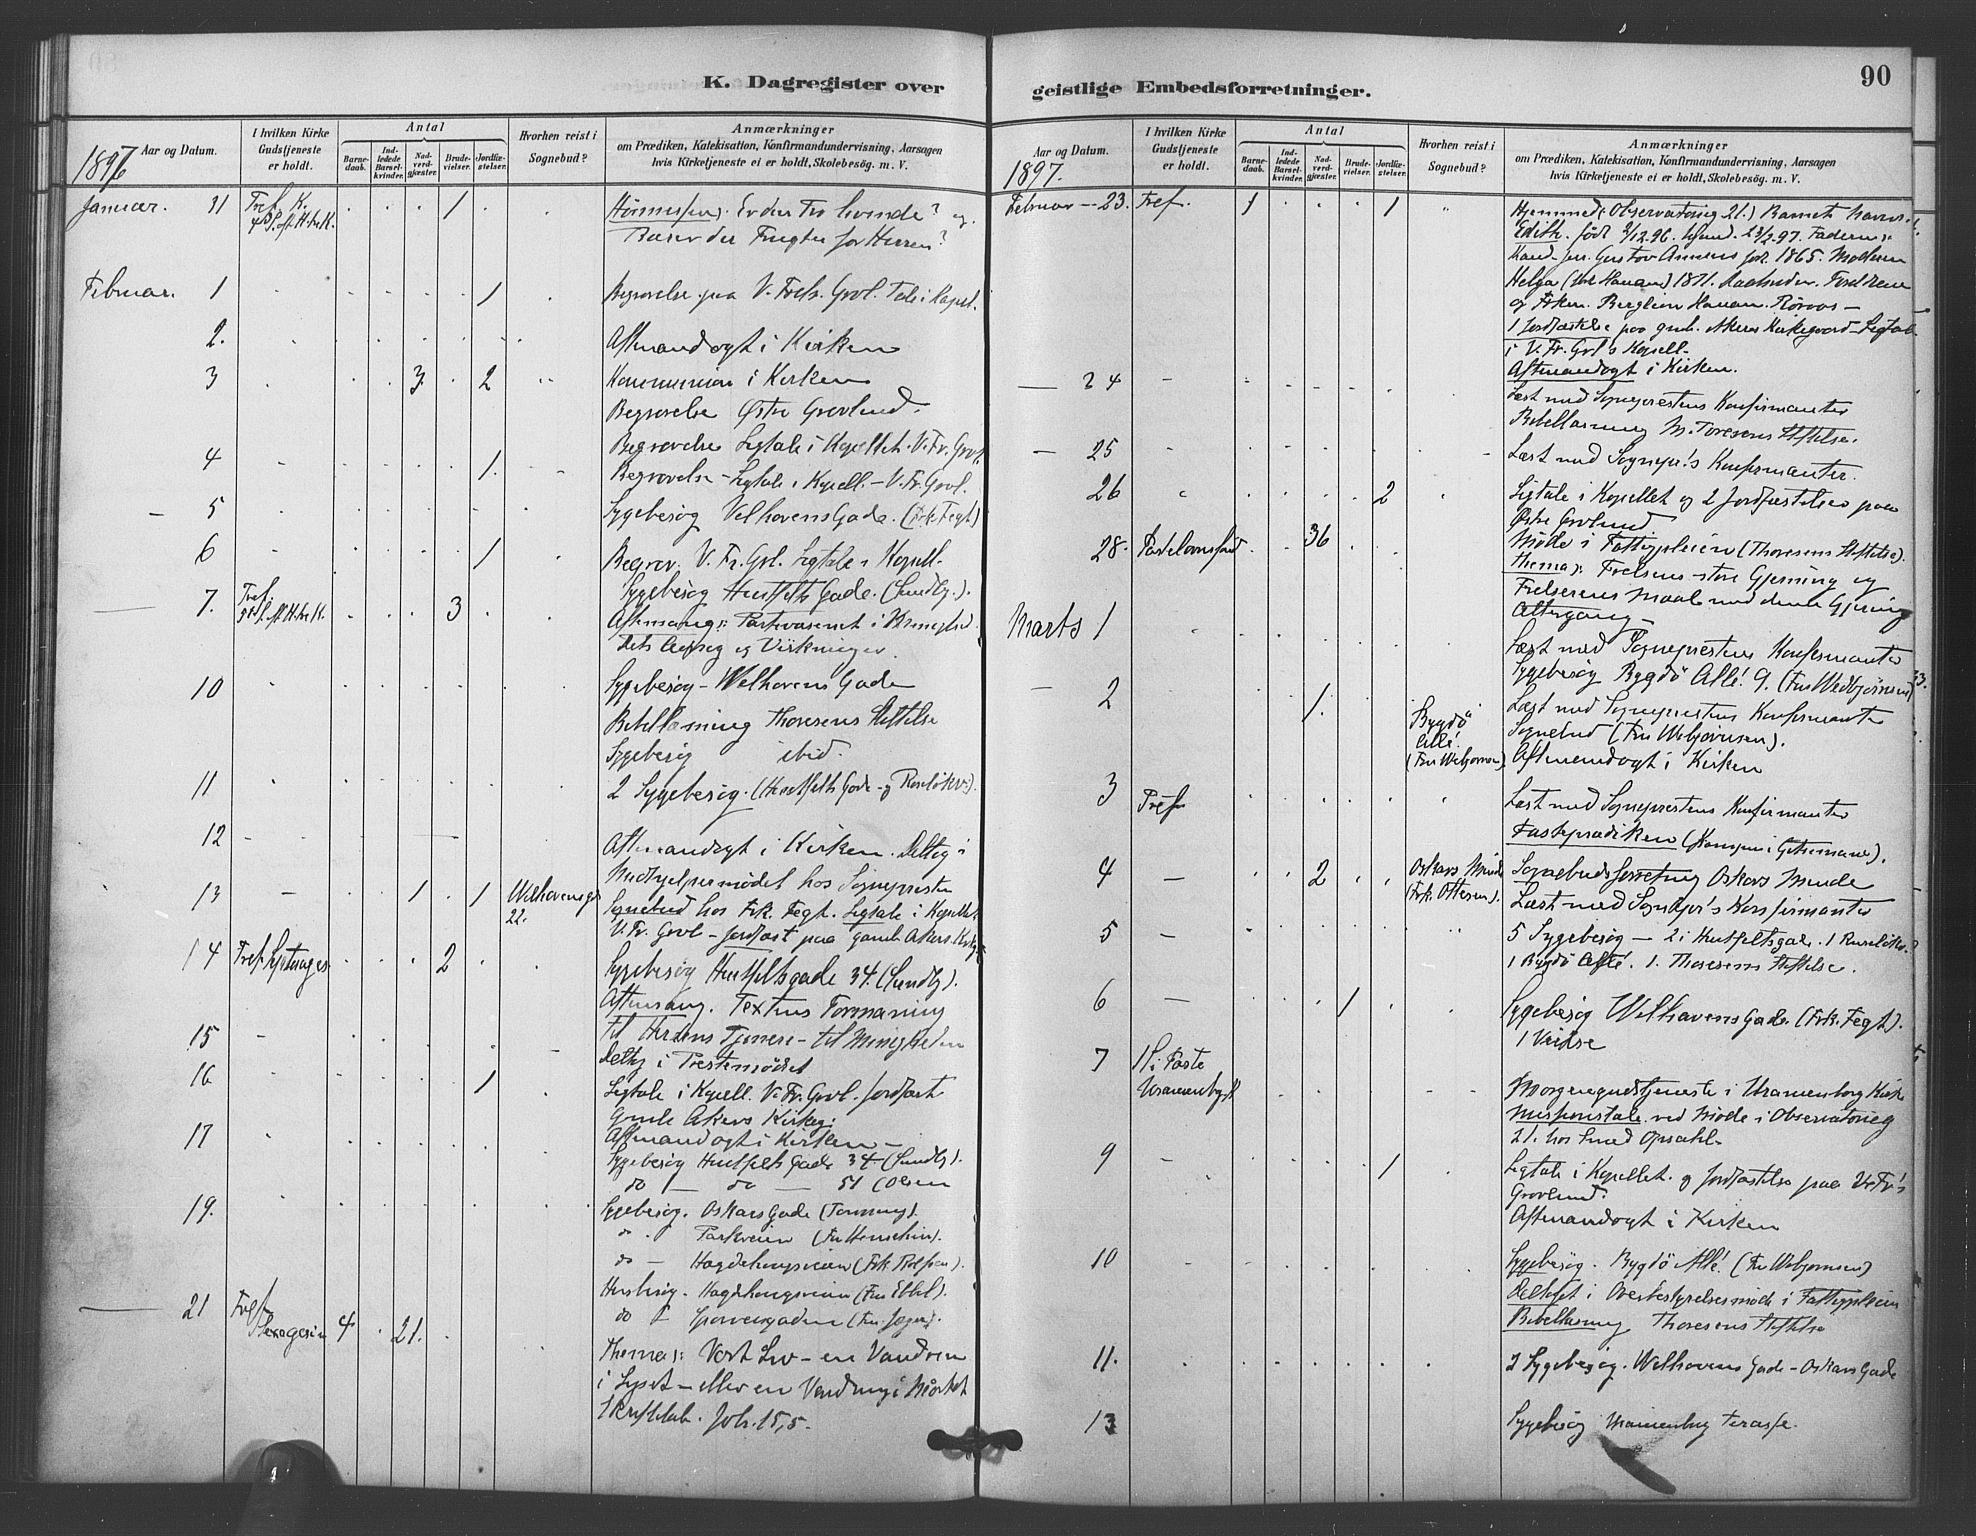 K. Dagregister over
Aar og Datum.
I hvilken Kirke Gudstjeneste er holdt.
Antal
Barnedaab.
Indledede Barselkvinder.
Nadverdgjester.
Brudevielser.
Jordfæstelser.
Hvorhen reist i Sognebud?
Anmærkninger
om Prædiken, Katekisation, Konfirmandundervisning, Aarsagen
hvis Kirketjeneste ei er holdt, Skolebesøg. m. V.
1897
Januar. 31 Fref. K. 1
Er der Tro hvinde? og
Bærer der Frugter for Herren?
Februar. 1 1 Begravelse paa V. Frels. Grvl. Tale i Kapel.
2. Aftenandagt i Kirken
3 3 2 Kommunion i Kirken
Begravelse Østre Gravlund.
4 1. Begravelse Ligtale i Kapellet. V. Fr. Grvl.
Begravelse - Ligtale i Kapell. - V. Fr. Grvl.
5 Sygebesøg Velhavens Gade. (Frk. Fegt)
6 1 Begrav. V. Fr. Grl. Ligtale i Kapell.
Sygebesøg Huitfelts Gade. (Sundby.).
7. Fref. 3 Aftensang:
og Virkninger.
10 Sygebesøg - Welhavens Gade
Bibellæsning Thoresens Stiftelse
Sygebesøg ibid.
11 2 Sygebesøg. (Huitfelts Gade og Ruseløkv.).
12 Aftenandagt i Kirken. Deltog i
Medhjelpermødet hos Sognepresten
13 1 1 Welhavensgd. 22. Sognebud hos Frk. Fegt. Ligtale i Kapellet
V. Fr. Grvl - Jordfæst paa gamle Akers Kirkg.
14 Fref. 2 Sygebesøg Huitfeltsgade 34. (Sundby).
Aftensang. Textens Formaning
til Herrens Tjenere - til Menigheden
15 Deltog i Prestemødet
16 1 Ligtale i Kapell. V. Fr. Grvl. Jordfæst
Gamle Akers Kirkeg.
17 Aftenandagt i Kirken -
Sygebesøg Huitfelts Gade 34 (Sundby).
do — do — 51 (Olsen
19. Sygebesøg. Oskars Gade
do Parkveien
do - Hægdehaugsveien
Husbesøg. Hægdehaugsveien (Fru Ebbel).
do Sporveisgaden
21 Fref. 4 21.
Thema: Vort Liv - en Vandren
i Lyset - eller en Vandring i Mørket
Skriftetale. Joh. 15,5.
geistlige Embedsforretninger.
90
Aar og Datum.
I hvilken Kirke Gudstjeneste er holdt.
Antal
Barnedaab.
Indledede Barselkvinder.
Nadverdgjester.
Brudevielser.
Jordfæstelser.
Hvorhen reist i Sognebud?
Anmærkninger
om Prædiken, Katekisation, Konfirmandundervisning, Aarsagen
hvis Kirketjeneste ei er holdt, Skolebesøg. m. V.
1897.
Februar - 23. Fref. 1 1 Hjemmed: Observatorieg 21.) Barnets Navn:
Edith. født 3/12.96. 23/2.97. Faderen:
Kand. jur. Gustav født 1865. Moderen
Helga 1871.
Røros -
1 Jordfæstelse paa gml. Akers Kirkegaard - Ligtale
i V. Fr. Grl's Kapell.
Aftenandagt i Kirken.
24 Læst med Sogneprestens Konfirmanter
Bibellæsning Stiftelse.
25 Læst med Sognepr's Konfirmanter.
26 2 Ligtale i Kapellet og 2 Jordfæstelser paa
Østre Gravlund
28. Fastelavnssønd 36 Møde i Fattigpleien (Thoresens Stiftelse).
Thema: Frelsens store Gjerning og
Frelserens Maal med denne Gjerning
Altergang -
Marts 1 Læst med Sogneprestens Konfirmanter
Sygebesøg Bygdø Allé. 9.
2 1. Bygdø Allé Læst med Sogneprestens Konfirmanter
Sognebud
Aftenandagt i Kirken
3 Fref Læst med Sogneprestens Konfirmanter
Fasteprædiken (Kampen i Getsemane).
4 2 Oskars Minde (Frk. Ottesen). Sognebudsforretning Oskars Minde
Læst med Sognepr's Konfirmanter
5 5 Sygebesøg - 2 i Huitfeltsgade. 1 Ruseløkv.
1 Bygdø Allé. 1. Thoresens Stiftelse.
6 1 Sygebesøg Welhavens Gade. (Frk. Fegt).
1 Vielse
7 1 S. i Faste
Uranienborg
Morgengudstjeneste i Uranienborg Kirke
Missionstale ved Møde i Observatorieg
21. hos Smed Opsahl.
9 1 Ligtale i Kapellet og Jordfæstelse paa Vr. Fr.'s
Gravlund.
Aftenandagt i Kirken
10 Sygebesøg. Bygdø Allé.
Deltaget i Overbestyrelsesmøde i Fattigpleien
Bibellæsning Thoresens Stiftelse
11. 2 Sygebesøg. Welhavens Gade - Oskars Gade
13 Sygebesøg Uranienborg Terasse.